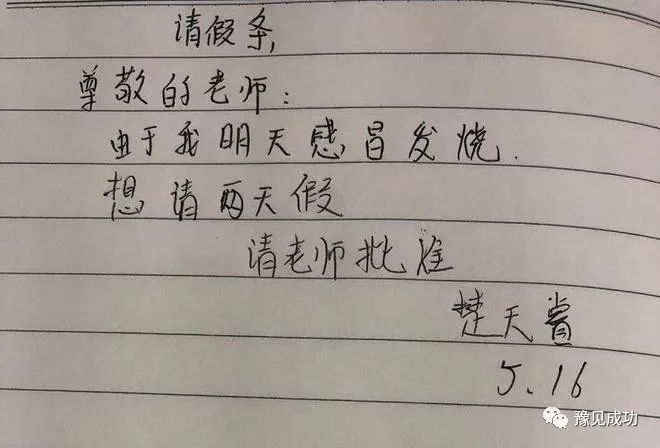 请假条,
尊敬的老师:
由于我明天感冒发烧.
想请两天假
请老师批准
楚天睿
5.16
豫见成功